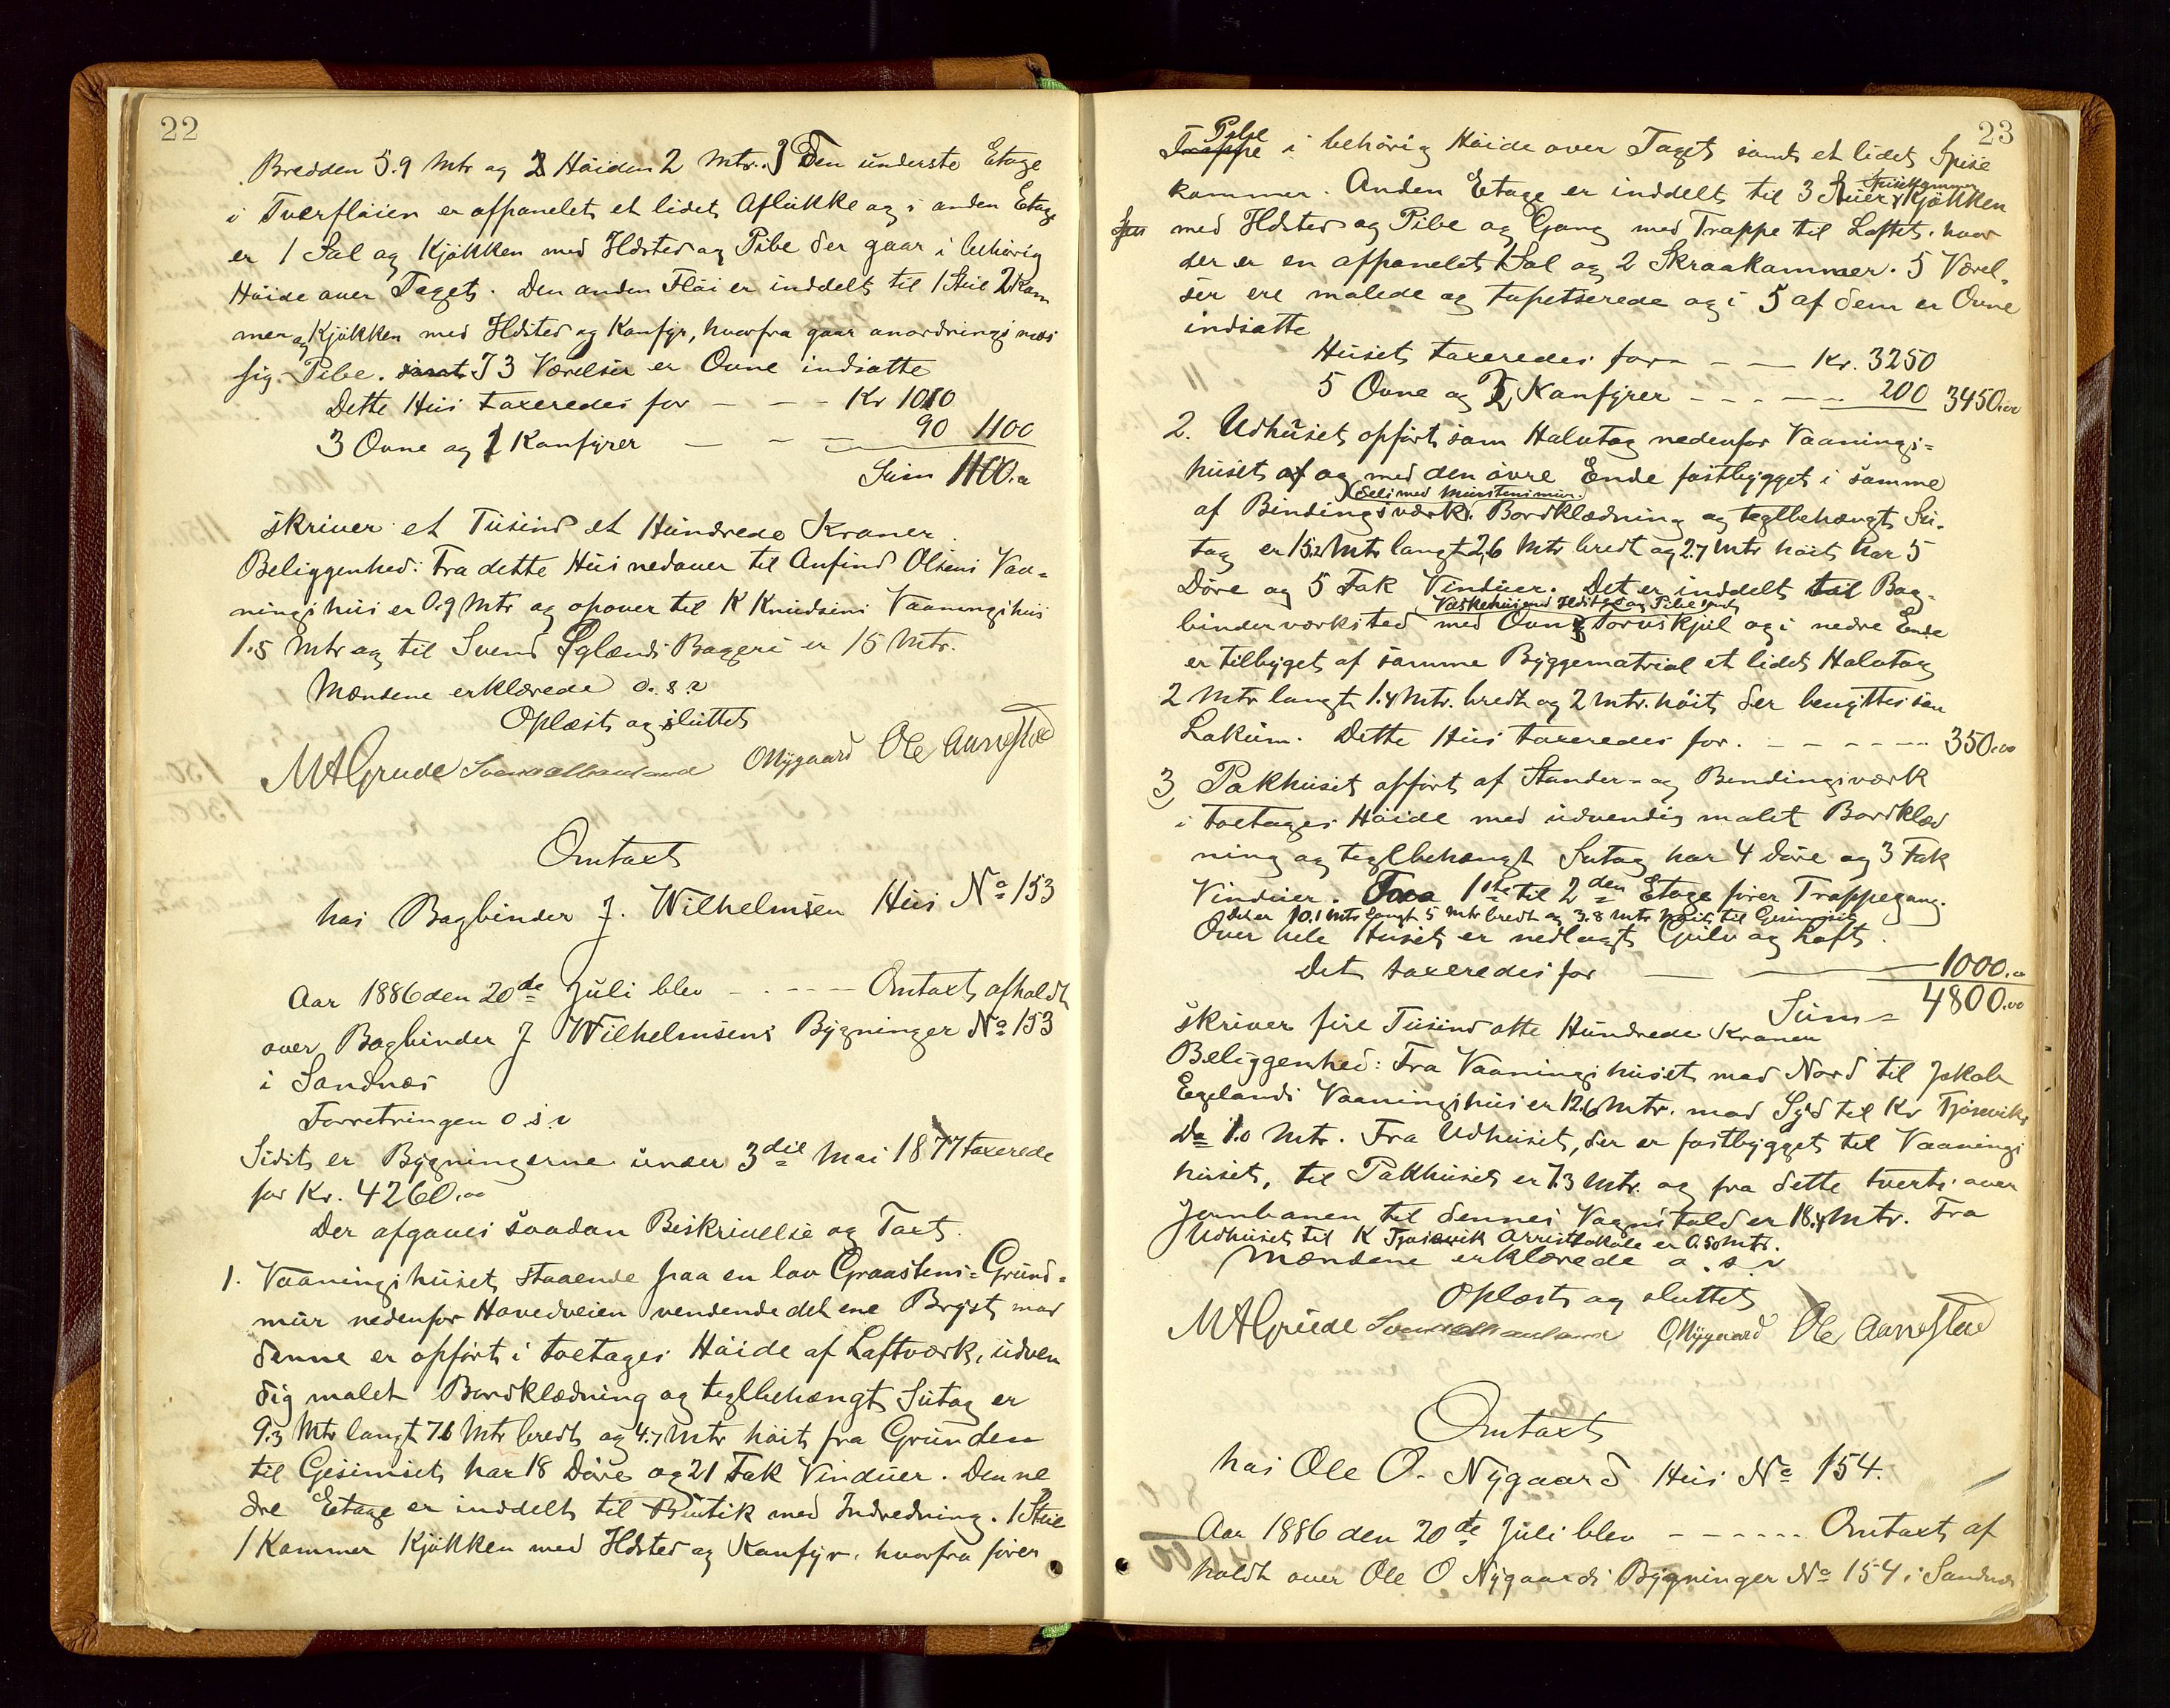 22
Bredden 5.9 Mtr og Høiden 2 Mtr. I Den underste Etage
i Tverfløien er afpanelet et lidet Aflukke og i anden Etage
er 1 Sal og Kjøkken med Ildsted og Pibe der gaar i behørig
Høide over Taget. Den anden Fløi er inddelt til 1 Stue 2 Kam
mer og Kjøkken med Ildsted og Komfyr, hvorfra gaar anordningsmæs
sig Pibe. samt I 3 Værelser er Ovne indsatte
Dette Hus taxeredes for - - - Kr 1010
3 Ovne og 1 Komfyrer - - - 90 1100
Sum 1100.00
skriver et Tusind et Hundrede Kroner.
Beliggenhed: Fra dette Hus nedover til Anfind Olsens Vaa-
ningshus er 0.9 Mtr og opover til K Knudsens Vaaningshus
1.5 Mtr og til Svend Øglænds Bageri er 15 Mtr.
Mændene erklærede o.s.v
Oplæst og sluttet
M A Grude Svend O Haaland O Nygaard Ole Aarrestad
Omtaxt
hos Bogbinder J. Wilhelmsen Hus No 153
Aar 1886 den 20de Juli blev - - - - Omtaxt afholdt
over Bogbinder J Wilhelmsens Bygninger No 153
i Sandnæs
Forretningen o.s.v
Sidst er Bygningerne under 3die Mai 1877 taxerede
for Kr. 4260.00
Der afgaves saadan Beskrivelse og Taxt.
1. Vaaningshuset staaende paa en lav Graastens-Grund-
mur nedenfor Hovedveien vendende det ene Bryst mod
denne er opført i toetages Høide af Laftværk, udven
dig malet Bordklædning og teglbehængt Sutag er
9.3 Mtr langt 7.6 Mtr bredt og 4.7 Mtr høit fra Grunden
til Gesimset har 18 Døre og 21 Fak Vinduer. Den ne
dre Etage er inddelt til Butik med Indredning. 1 Stue
1 Kammer Kjøkken med Ildsted og Komfyr, hvorfra fører
23
Pibe
Trappe i behørig Høide over Taget samt et lidet Spise
kammer. Anden Etage er inddelt til 3 Stuer, Spisekammer Kjøkken
med Ildsted og Pibe og Gang med Trappe til Loftet, hvor
der er en afpanelet Sal og 2 Skraakammer. 5 Værel-
ser ere malede og tapetserede og i 5 af dem er Ovne
indsatte
Huset taxeredes for - - - Kr. 3250
5 Ovne og 2 Komfyrer - - - - 200 3450.00
2. Udhuset opført som Halvtag nedenfor Vaanings-
huset af og med den øvre Ende fastbygget i samme
(dels med Murstensmur.)
af Bindingsværk. Bordklædning og teglbehængt Su-
tag er 15.2 Mtr langt 2.6 Mtr bredt og 2.7 Mtr høit har 5
Døre og 5 Fak Vinduer. Det er inddelt til Bog-
Vaskehus med Ildsted og Pibe samt
binderværksted med Ovn & Torvskjul og i nedre Ende
er tilbyget af samme Byggematrial et lidet Halvtag
2 Mtr langt 1.4 Mtr. bredt og 2 Mtr. høit der benyttes som
Lokum. Dette Hus taxeredes for. - - - - - 350.00
3, Pakhuset opført af Stander- og Bendingsværk
i toetages Høide med udvendig malet Bordklæd
ning og teglbehængt Sutag har 4 Døre og 3 Fak
Vinduer. Fra 1ste til 2den Etage fører Trappegang.
Det er 10.1 Mtr langt 5 Mtr bredt og 3.8 Mtr høit til Gesimset
Over hele Huset er nedlagt Gulv og Loft.
Det taxeredes for - - - 1000.00
Sum = 4800.00
skriver fire Tusind otte Hundrede Kroner
Beliggenhed: Fra Vaaningshuset mod Nord til Jakob
Egelands Vaaningshus er 12.6 Mtr. mod Syd til Kr Tjøsevik
Do 1.0 Mtr. Fra Udhuset, der er fastbygget til Vaanings
huset, til Pakhuset er 7.3 Mtr. og fra dette tverts over
Jernbanen til dennes Vognstald er 18.4 Mtr. Fra
Udhuset til K Tjøsevik Arrestlokale er 0.50 Mtr.
Mændene erklærede o.s.v
Oplæst og sluttet
M A Grude Svend O Haaland O Nygaard Ole Aarrestad
Omtaxt
hos Ole O. Nygaard Hus No 154.
Aar 1886 den 20de Juli blev - - - - - - Omtaxt af
holdt over Ole O Nygaards Bygninger No 154 i Sandnæs